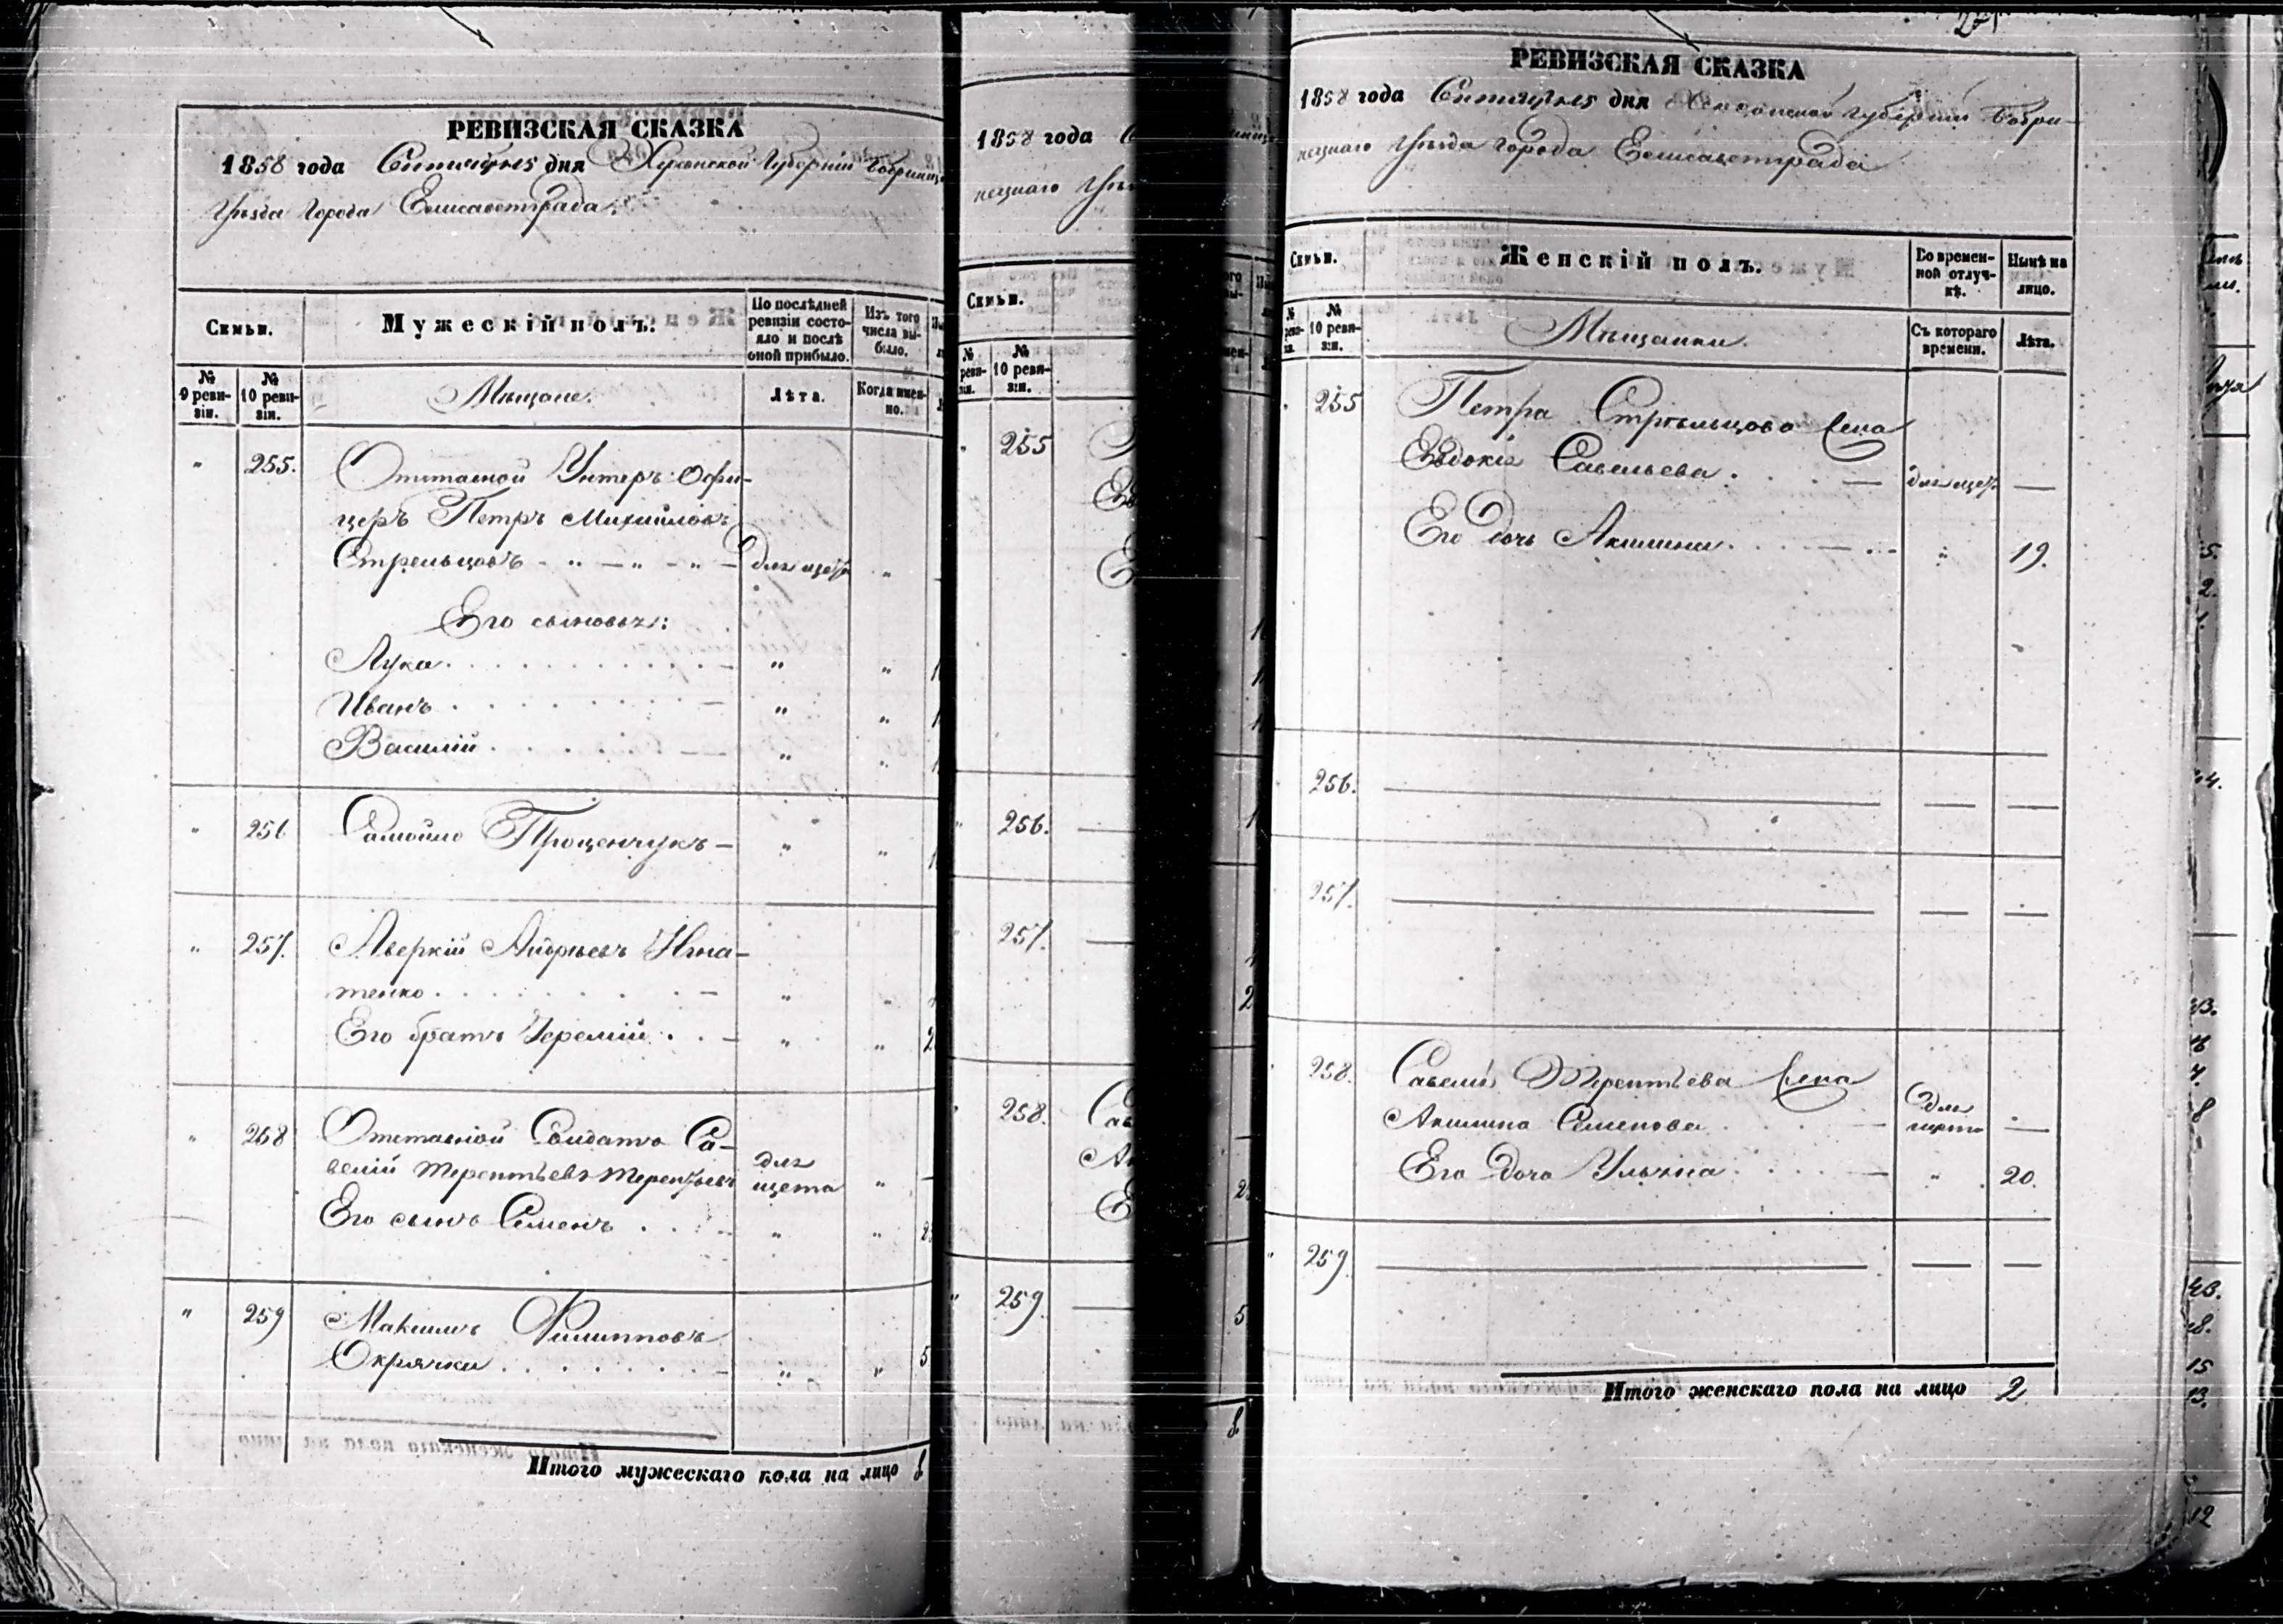 РЕВИЗСКАЯ СКАЗКА
1858 года Сентября дня Херсонской Губерніи Бобринец
Уѣзда Города Елисаветграда.
Семьи.
Мужескій полъ.
По послѣдней ревизіи состояло и послѣ оной прибыло.
Изъ того числа выбыло.
№ 9 ревизіи.
№ 10 ревизіи.
Мѣщане.
Лѣта.
Когда именно.
" 255. Отставной Унтеръ-Офи-
церъ Петръ Михайловъ
Стрельцовъ - " - " - " - для щета "
Его сыновья:
Лука . . . " "
Иванъ . . . " "
Василій . . . " "
" 256 Самойло Проценчукъ - " "
" 257. Аверкій Андрѣевъ Игна-
тенко . . . " "
Его братъ Іеремій . . . " "
" 258 Отставной Солдатъ Са-
велій Терентьевъ Терентьевъ для щета "
Его сынъ Семенъ . . . " "
" 259 Максимъ Филипповъ
Окрячка . . . " " 5
Итого мужескаго пола на лицо 8
1858 года
нецкаго Уѣз
Семьи.
№ ревизіи.
№ 10 ревизіи.
255
256.
257.
258.
259.
5
8
РЕВИЗСКАЯ СКАЗКА
1858 года Сентября дня Херсонской Губерніи Бобри-
нецкаго Уѣзда Города Елисаветграда
Семьи.
Женскій полъ.
Во временной отлучкѣ.
Нынѣ на лицо.
№ 10 ревизіи.
Мѣщанки.
Съ котораго времени.
Лѣта.
255 Петра Стрѣльцова жена
Евдокія Савельева . . . — для щета —
Его дочь Акилина . . . — " 19.
256. — — —
257. — — —
258. Савелія Терентьева жена
Акилина Семенова . . . — для щета —
Его дочь Ульяна . . . — " 20.
259. — — —
Итого женскаго пола на лицо 2.